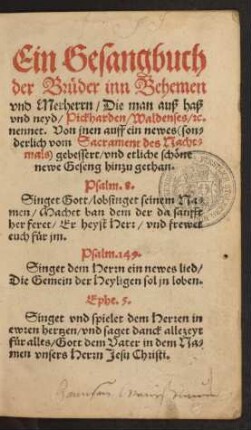 Ein Gesangbuch
der Brüder inn Behemen
vnd Merherrn / Die man auß haß
vnd neyd / Pickharden / Waldenses / ꝛc.
nennet. Von jnen auff ein newes (son-
derlich vom Sacrament des Nacht-
mals) gebessert / vnd etliche schöne
newe Geseng hinzu gethan.
Psalm. 8.
Singet Gott / lobsinget seinem Na-
men / Machet ban dem der da sanfft
her feret / Er heyst Herr / vnd frewet
euch für jm.
Psalm. 149.
Singet dem Herrn ein newes lied /
Die Gemein der Heyligen sol jn loben.
Ephe. 5.
Singet vnd spielet dem Herren in
ewren hertzen / vnd saget danck allezeyt
für alles / Gott dem Vater in dem Na-
men vnsers Herrn Jesu Christi.